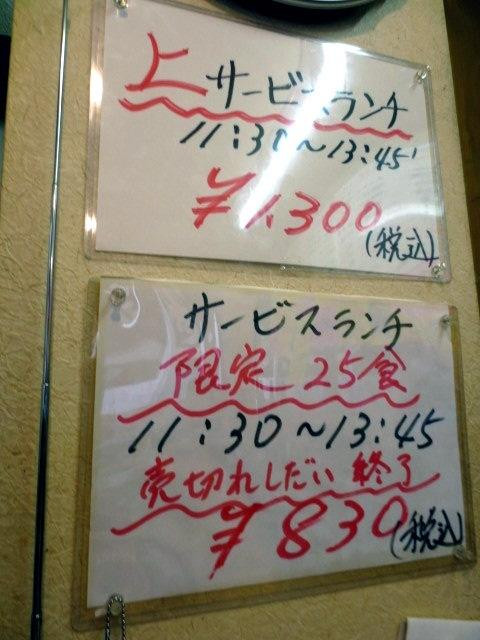 上サービスランチ
11:30~13:45
¥1,300
(税込)
サービスランチ
限定 25食
11:30~13:45
売切れしだい 終了
¥830(税込)